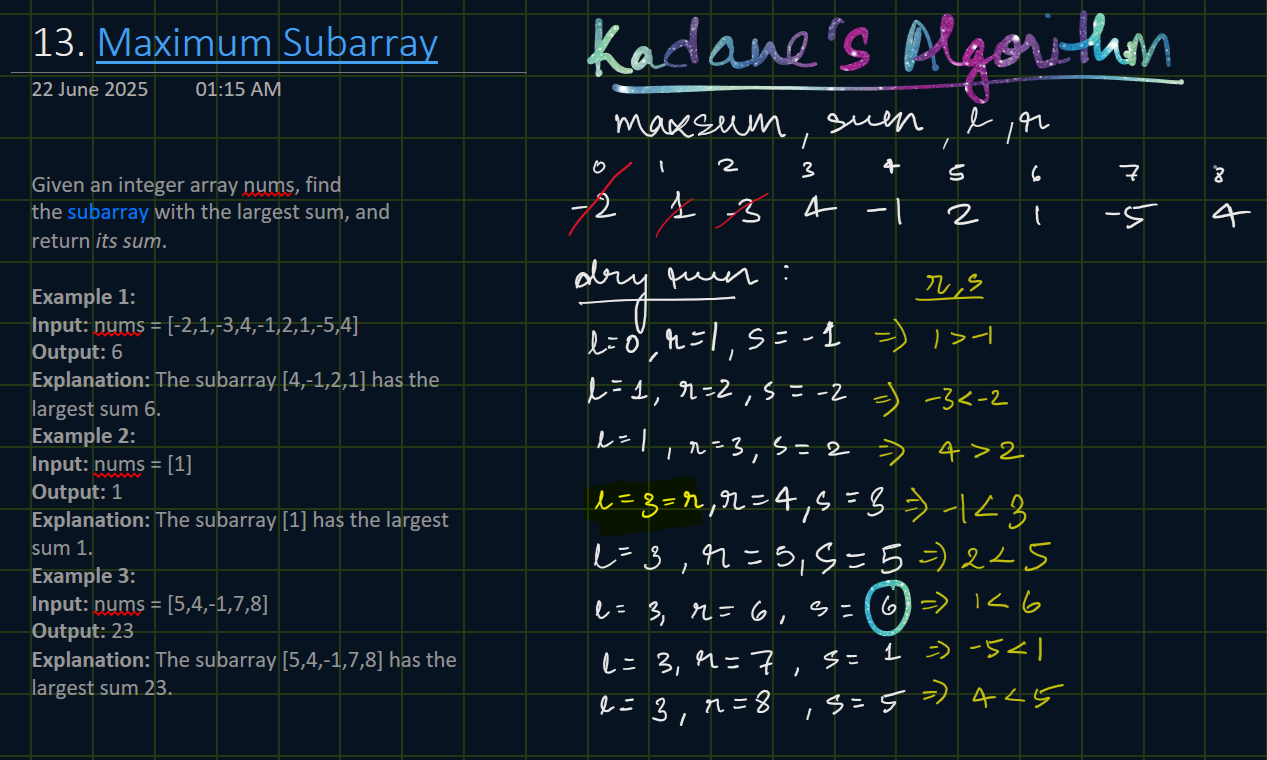 13. Maximum Subarray
22 June 2025 01:15 AM
Given an integer array nums, find
the subarray with the largest sum, and
return its sum.
Example 1:
Input: nums = [-2,1,-3,4,-1,2,1,-5,4]
Output: 6
Explanation: The subarray [4,-1,2,1] has the
largest sum 6.
Example 2:
Input: nums = [1]
Output: 1
Explanation: The subarray [1] has the largest
sum 1.
Example 3:
Input: nums = [5,4,-1,7,8]
Output: 23
Explanation: The subarray [5,4,-1,7,8] has the
largest sum 23.
Kadane's Algorithm
maxsum, sum, l, r
0 1 2 3 4 5 6 7 8
-2 1 -3 4 -1 2 1 -5 4
dry run :
r, s
l=0, r=1, s = -1 => 1 > -1
l=1, r=2, s = -2 => -3 < -2
l=1, r=3, s = 2 => 4 > 2
l=3=r, r=4, s=3 => -1 < 3
l=3, r=5, s=5 => 2 < 5
l=3, r=6, s=6 => 1 < 6
l=3, r=7, s=1 => -5 < 1
l=3, r=8, s=5 => 4 < 5